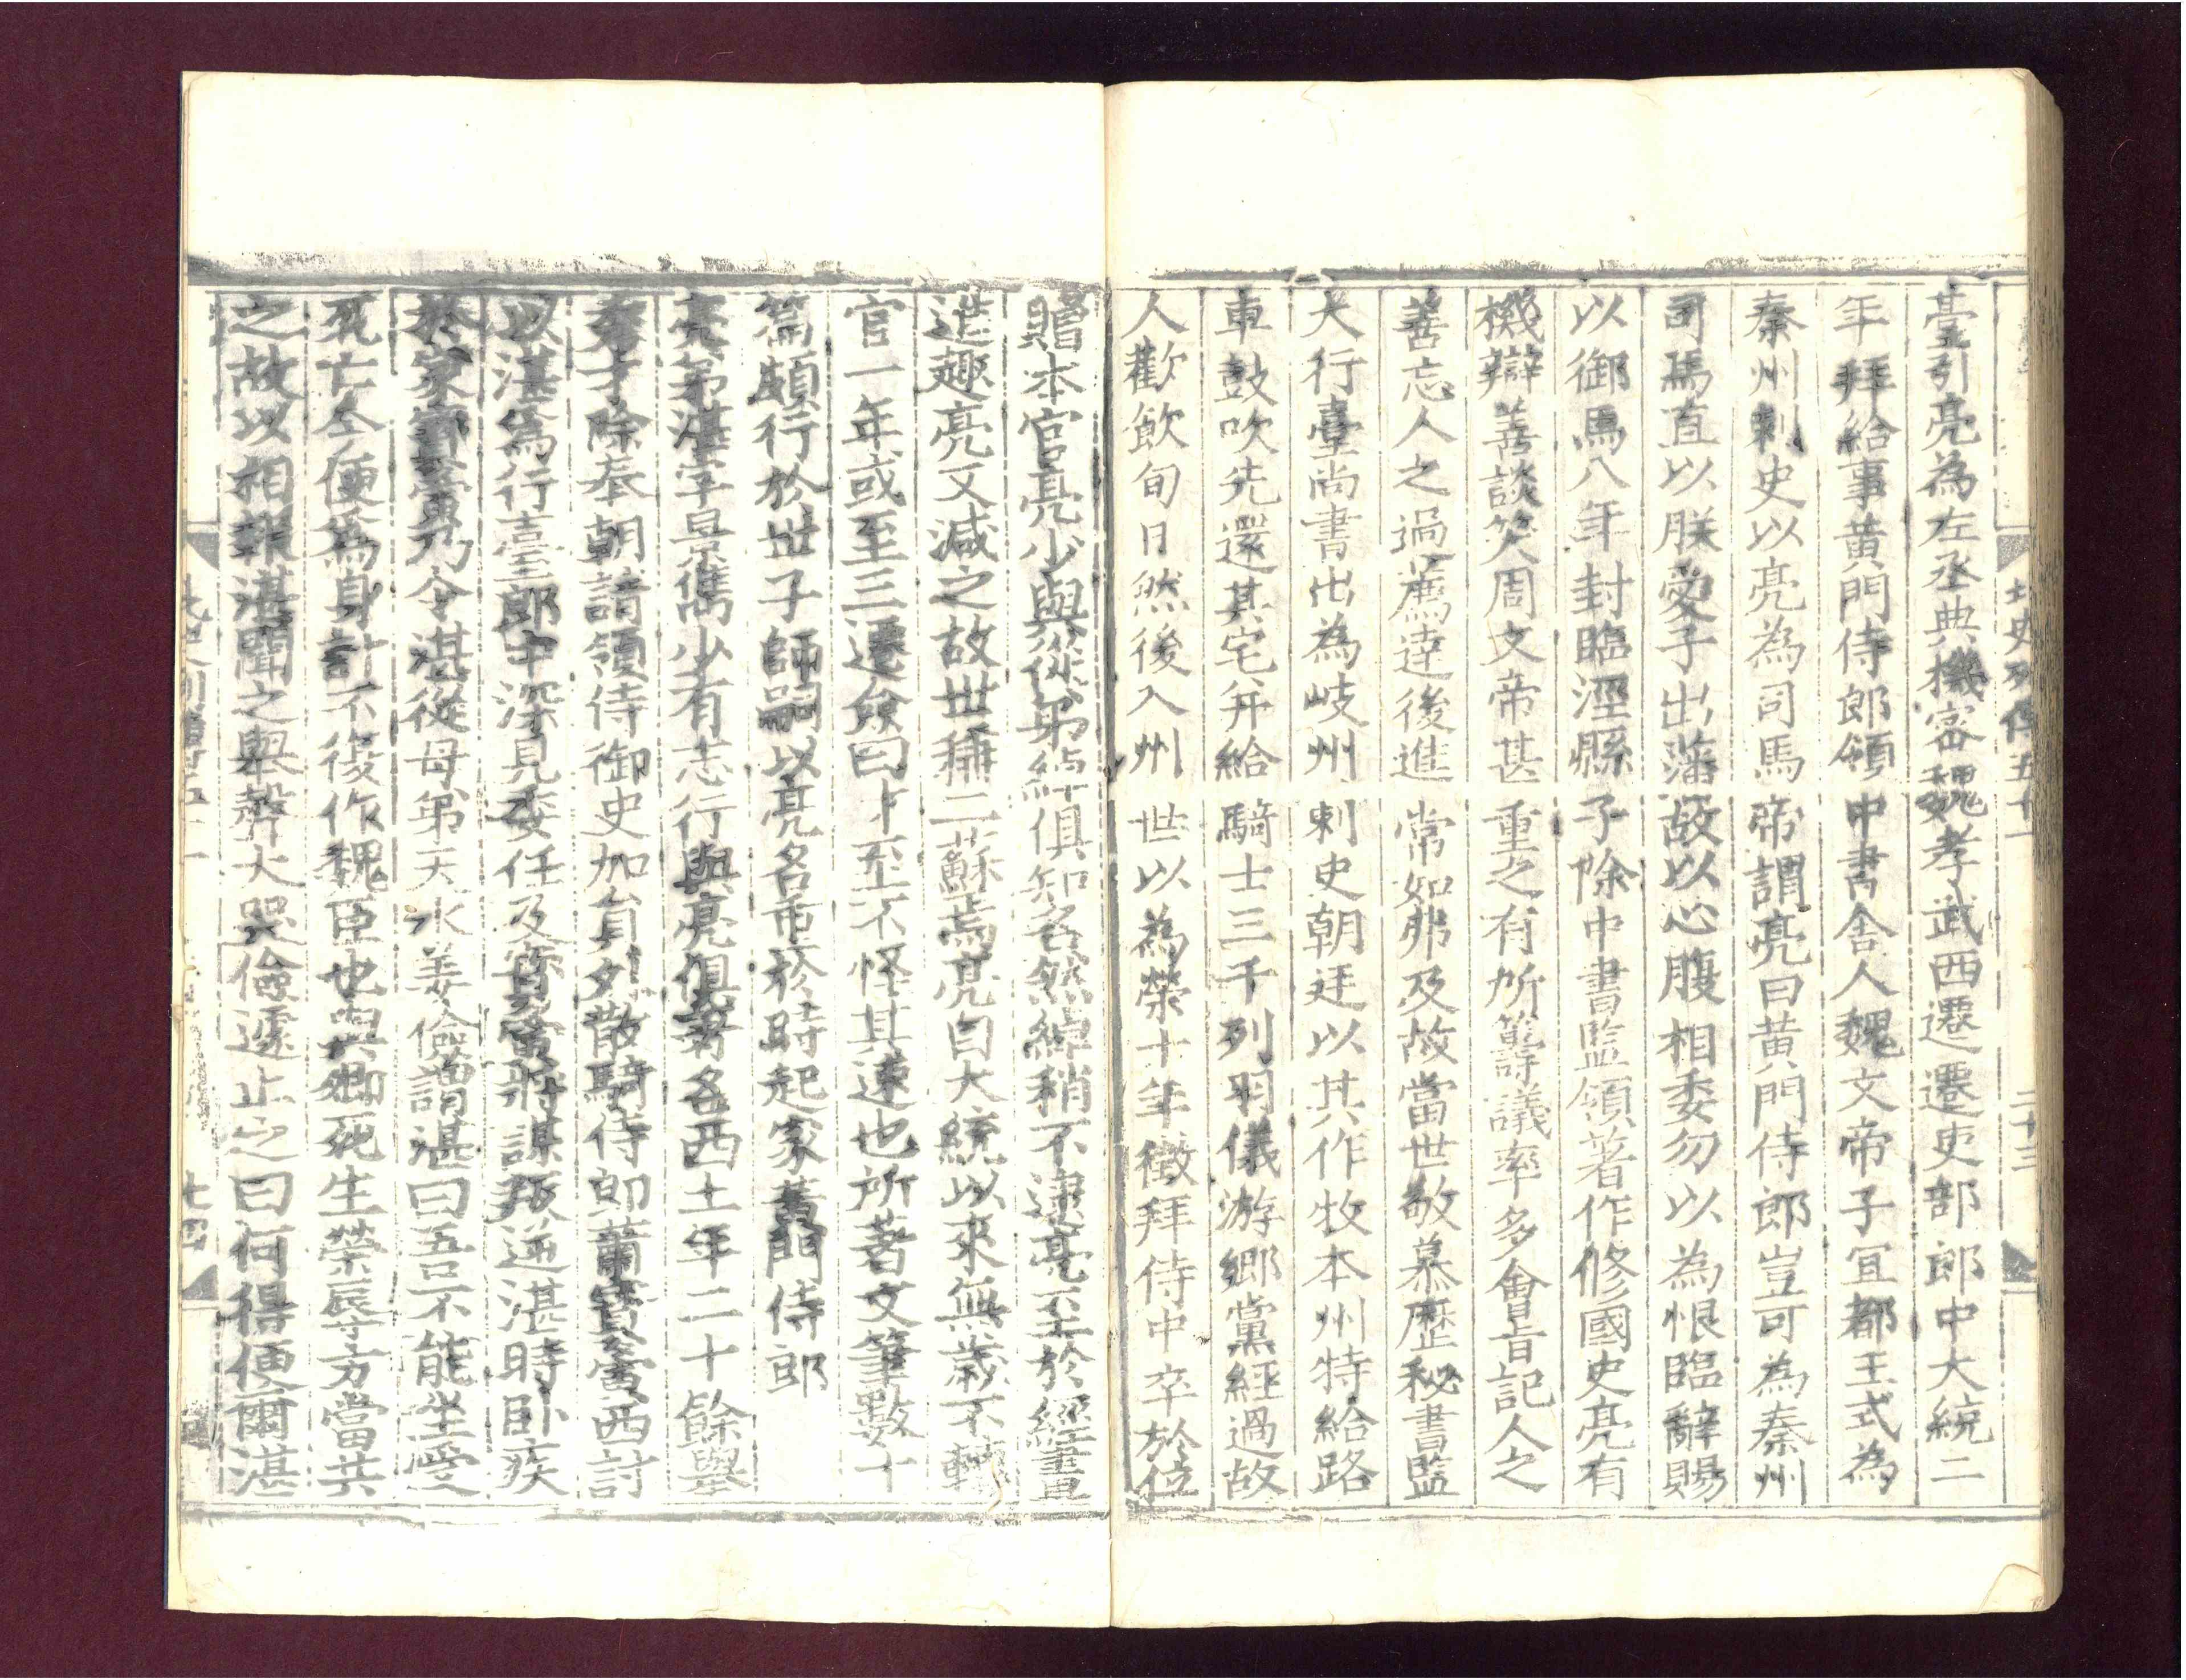 北史列傳五十一　二十三
臺引亮為左丞典機密魏孝武西遷遷吏部郎中大統二
年拜給事黃門侍郎領中書舍人魏文帝子宜都王式為
秦州刺史以亮為司馬帝謂亮曰黃門侍郎豈可為秦州
司馬直以朕愛子出藩故以心腹相委勿以為恨臨辭賜
以御馬八年封臨涇縣子除中書監領著作修國史亮有
機辯善談笑周文帝甚重之有所籌議率多會旨記人之
善忘人之過薦達後進常如弗及故當世敬慕歷秘書監
大行臺尚書出為岐州刺史朝廷以其作牧本州特給路
車鼓吹先還其宅并給騎士三千列羽儀游鄉黨經過故
人歡飲旬日然後入州世以為榮十年徵拜侍中卒於位
贈本官亮少與從弟綽俱知名然綽稍不逮亮至於經畫
進趣亮又減之故世稱二蘇焉亮自大統以來無歲不轉
官一年或至三遷僉曰才至不怪其速也所著文筆數十
篇頗行於世子師嗣以亮名重於時起家黃門侍郎
亮弟湛字景儁少有志行與亮俱著名西土年二十餘舉
秀才除奉朝請領侍御史加員外散騎侍郎蕭寶夤西討
以湛為行臺郎中深見委任及寶夤將謀叛逆湛時臥疾
於家寶夤乃令湛從母弟天水姜儉謂湛曰吾不能坐受
死亡今便為身計不復作魏臣也與卿死生榮辱方當共
之故以相報湛聞之舉聲大哭儉遽止之曰何得便爾湛